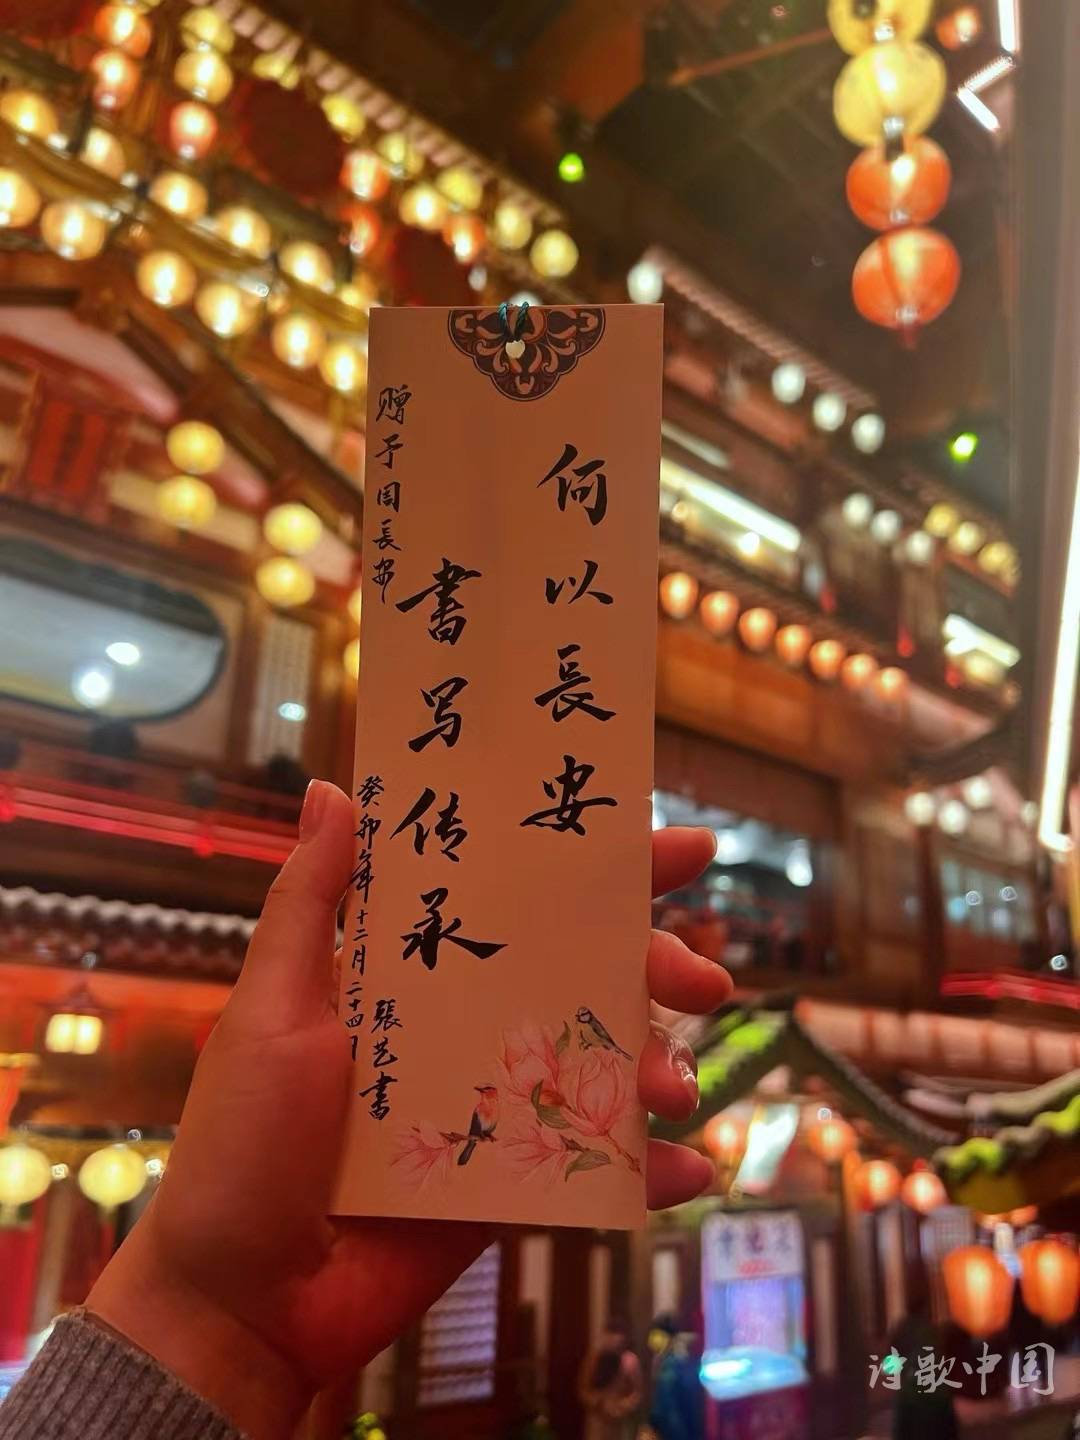 何以長安
書写传承
赠予周長安
癸卯年十二月二十四日
張艺書
诗歌中国